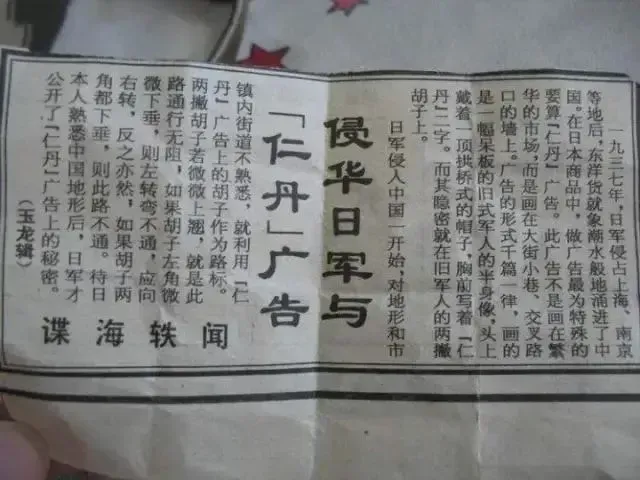 谍海轶闻
侵华日军与
「仁丹」广告
一九三七年,日军侵占上海、南京
等地后,东洋货就象潮水般地涌进了中
国。在日本商品中,做广告最为特殊的
要算「仁丹」广告。此广告不是画在繁
华的市场,而是画在大街小巷、交叉路
口的墙上。广告的形式千篇一律,画的
是一幅呆板的旧式军人的半身像,头上
戴着一顶拱桥式的帽子,胸前写着「仁
丹」二字。而其隐密就在旧军人的两撇
胡子上。
日军侵入中国一开始,对地形和市
镇内街道不熟悉,就利用「仁
丹」广告上的胡子作为路标。
两撇胡子若微微上翘,就是此
路通行无阻,如果胡子左角微
微下垂,则左转弯不通,应向
右转,反之亦然,如果胡子两
角都下垂,则此路不通。待日
本人熟悉中国地形后,日军才
公开了「仁丹」广告上的秘密。
(玉龙辑)